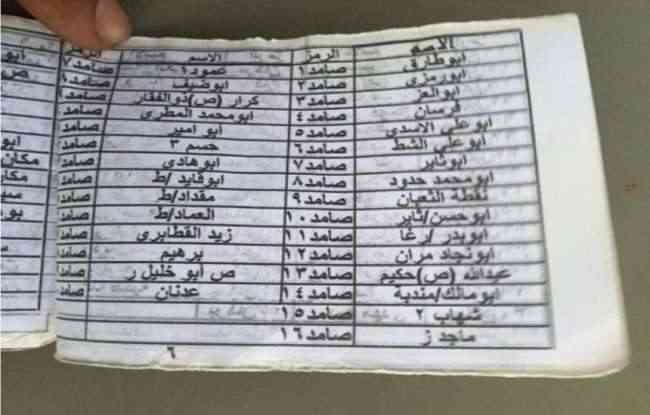 الاسم الرمز الاسم الرمز
ابو طارق صامد١ صمود١ صامد٧
ابو رمزي صامد٢ ابو ضيف صامد
ابو العز صامد٣ كرار (ص)ذوالفقار صامد
فرسان صامد٤ ابو محمد المطري صامد
ابو علي الاسدي صامد٥ ابو امير صامد
ابو علي الشط صامد٦ حسم ٣ صامد
ابو ثاير صامد٧ ابو هادي صامد
ابو محمد حدود صامد٨ ابو فايد /ط صامد
نقطة الثعبان صامد٩ مقداد/ط صامد
ابو حسن/ثاير صامد١٠ العماد/ط صامد
ابو بدر /رغا صامد١١ زيد القطابري صامد
ابو نجاد مران صامد١٢ برهيم صامد
عبدالله (ص)حكيم صامد١٣ ص أبو خليل ر صامد
ابو مالك/مندبة صامد١٤ عدنان صامد
شهاب ٢ صامد١٥
ماجد ز صامد١٦
٦